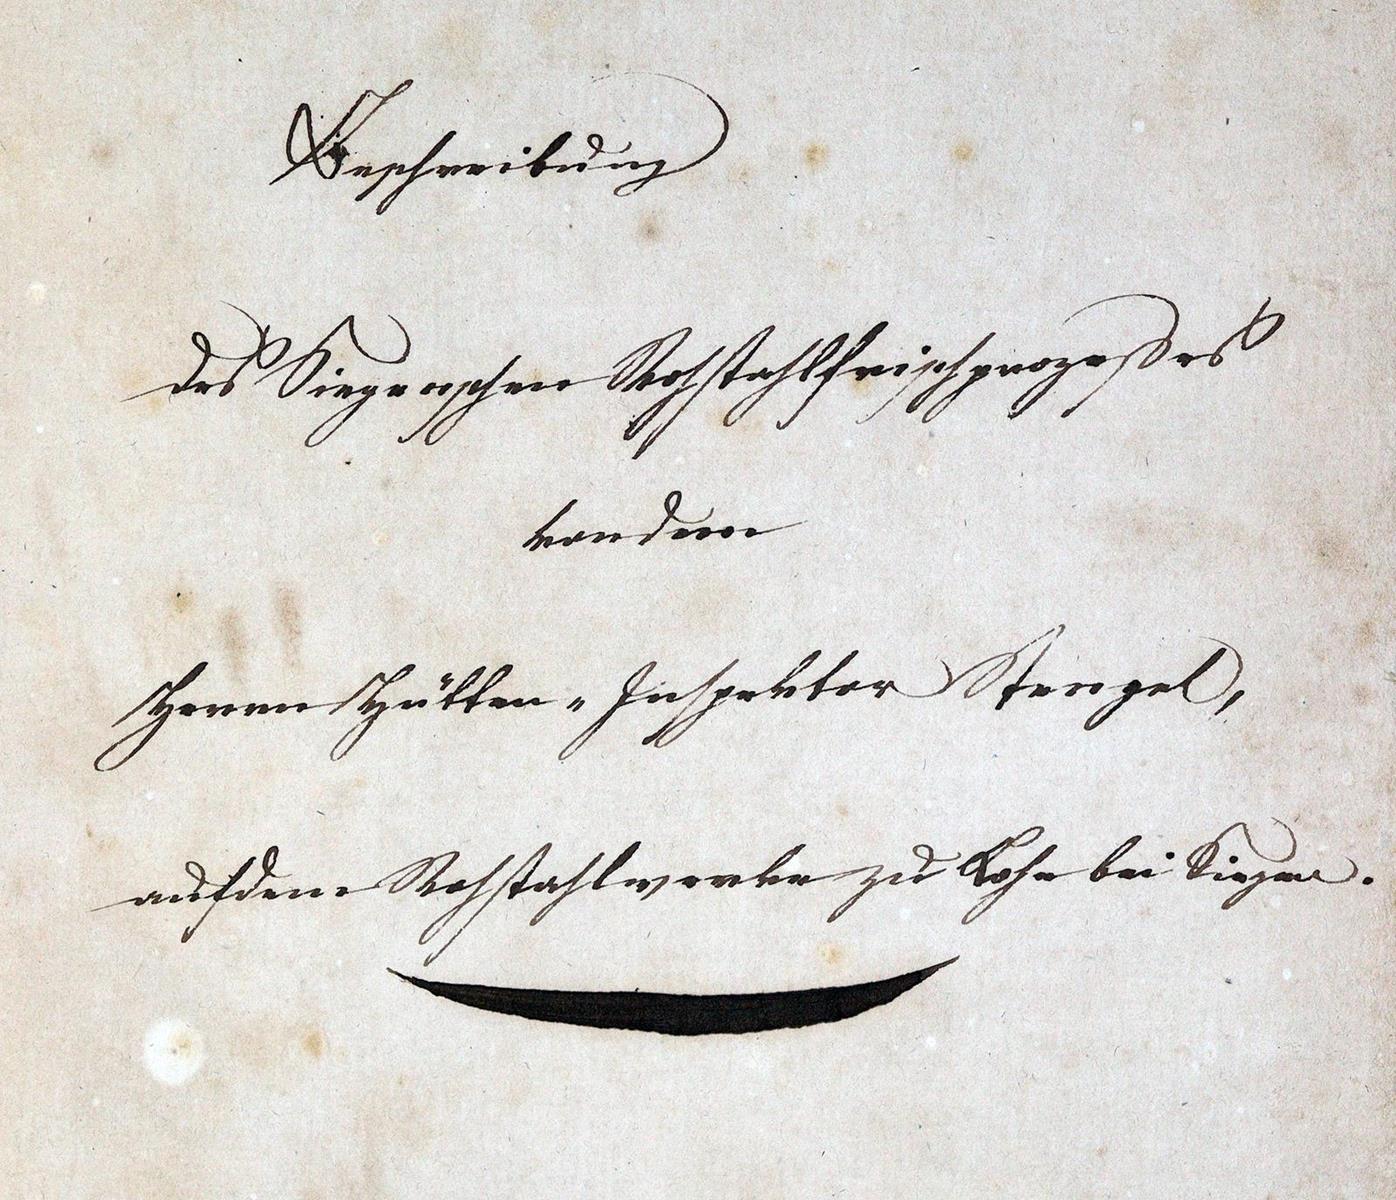 Beschreibung
des Siegenschen Rohstahlfrischprozeßes
von dem
Herrn Hütten-Inspektor Stengel,
auf dem Rohstahlwerke zu Lohe bei Siegen.